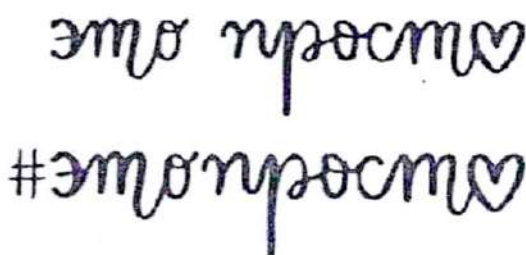 это просто
#этопросто